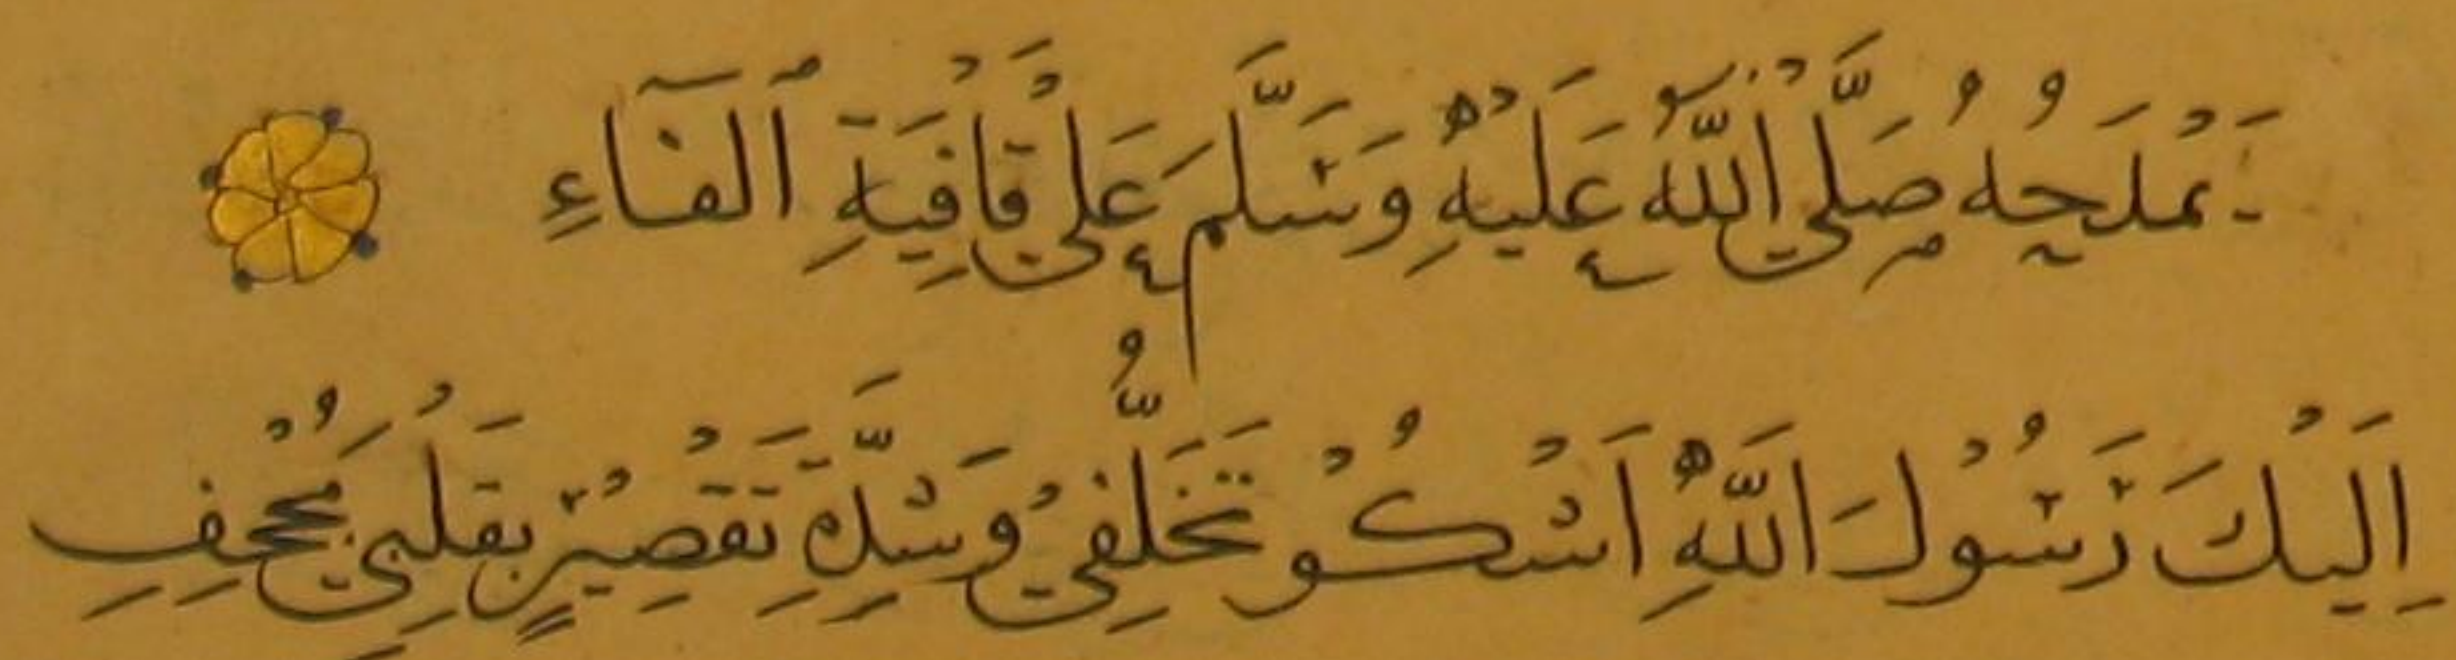 يَمْدَحُهُ صَلَّى اللَّهُ عَلَيْهِ وَسَلَّمَ عَلَى قَافِيَةِ ٱلْفَاءِ
اِلَيْكَ رَسُولَ اللَّهِ اَشْكُو تَخَلُّفِي وَسَدِّ تَقْصِيرٍ بِقَلْبِي مُجْحِفِ